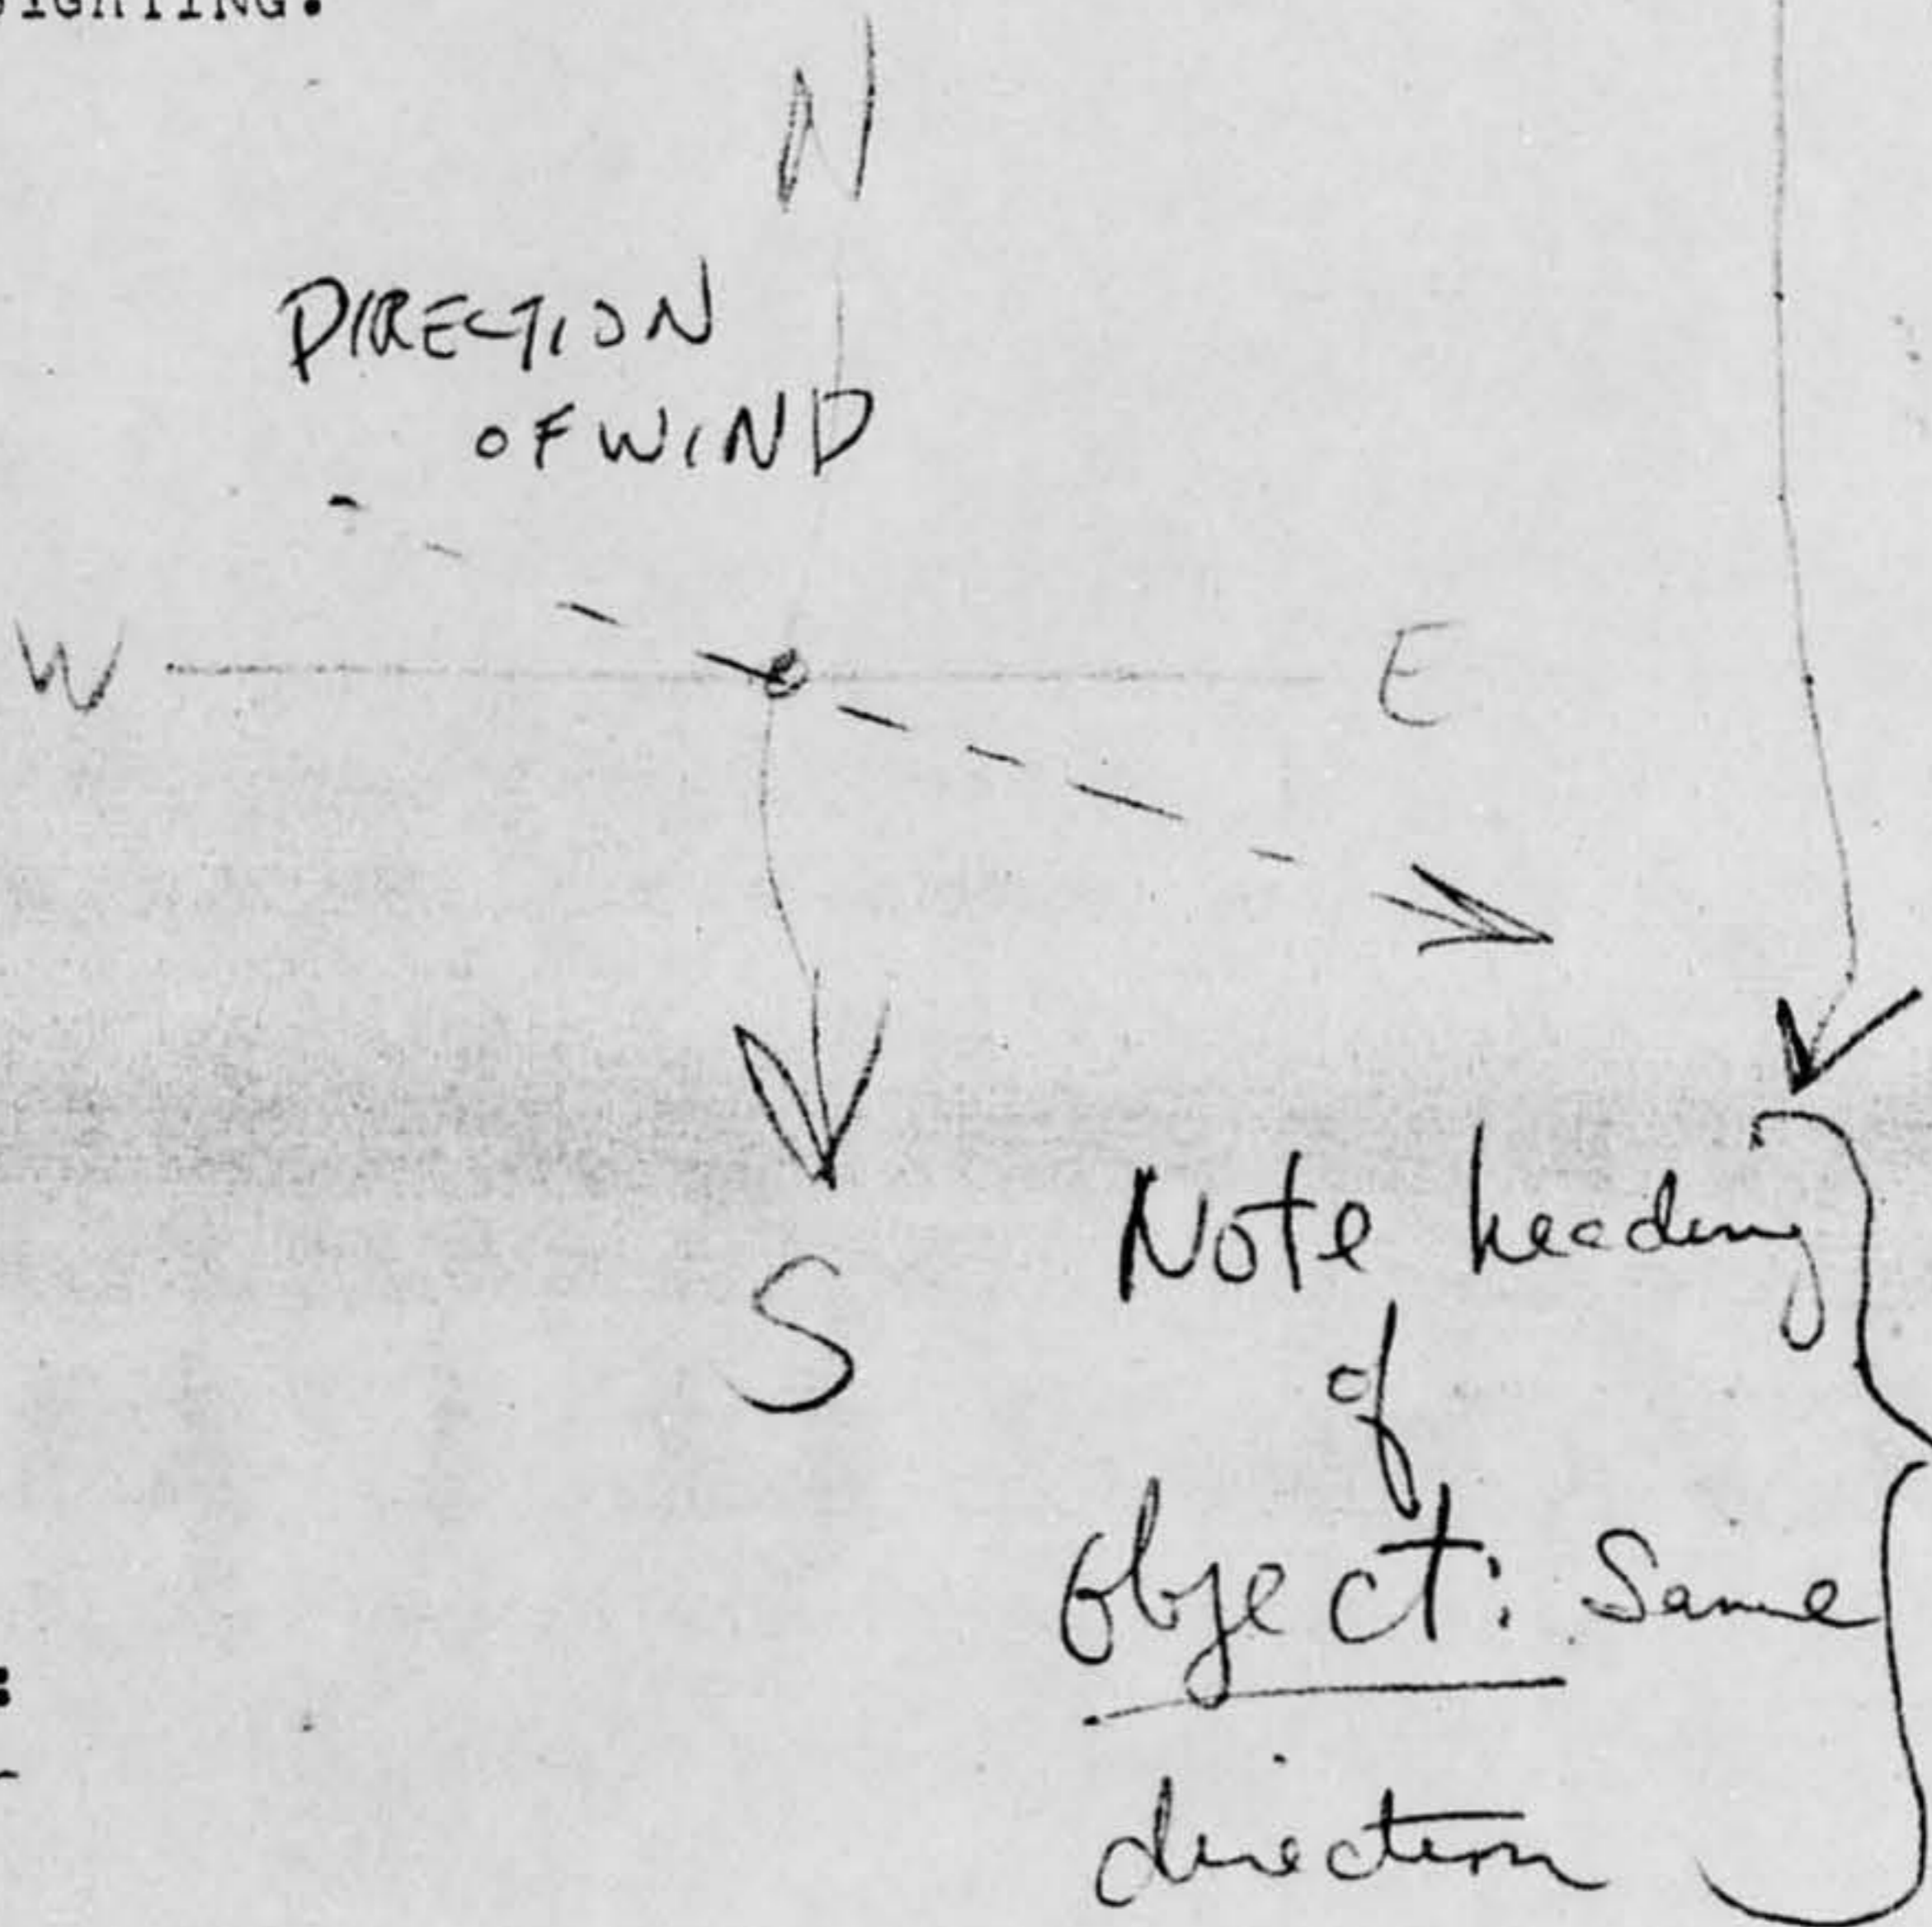 SIGHTING.
N
DIRECTION
OF WIND
W
E
S
Note heading
of
object: Same
direction